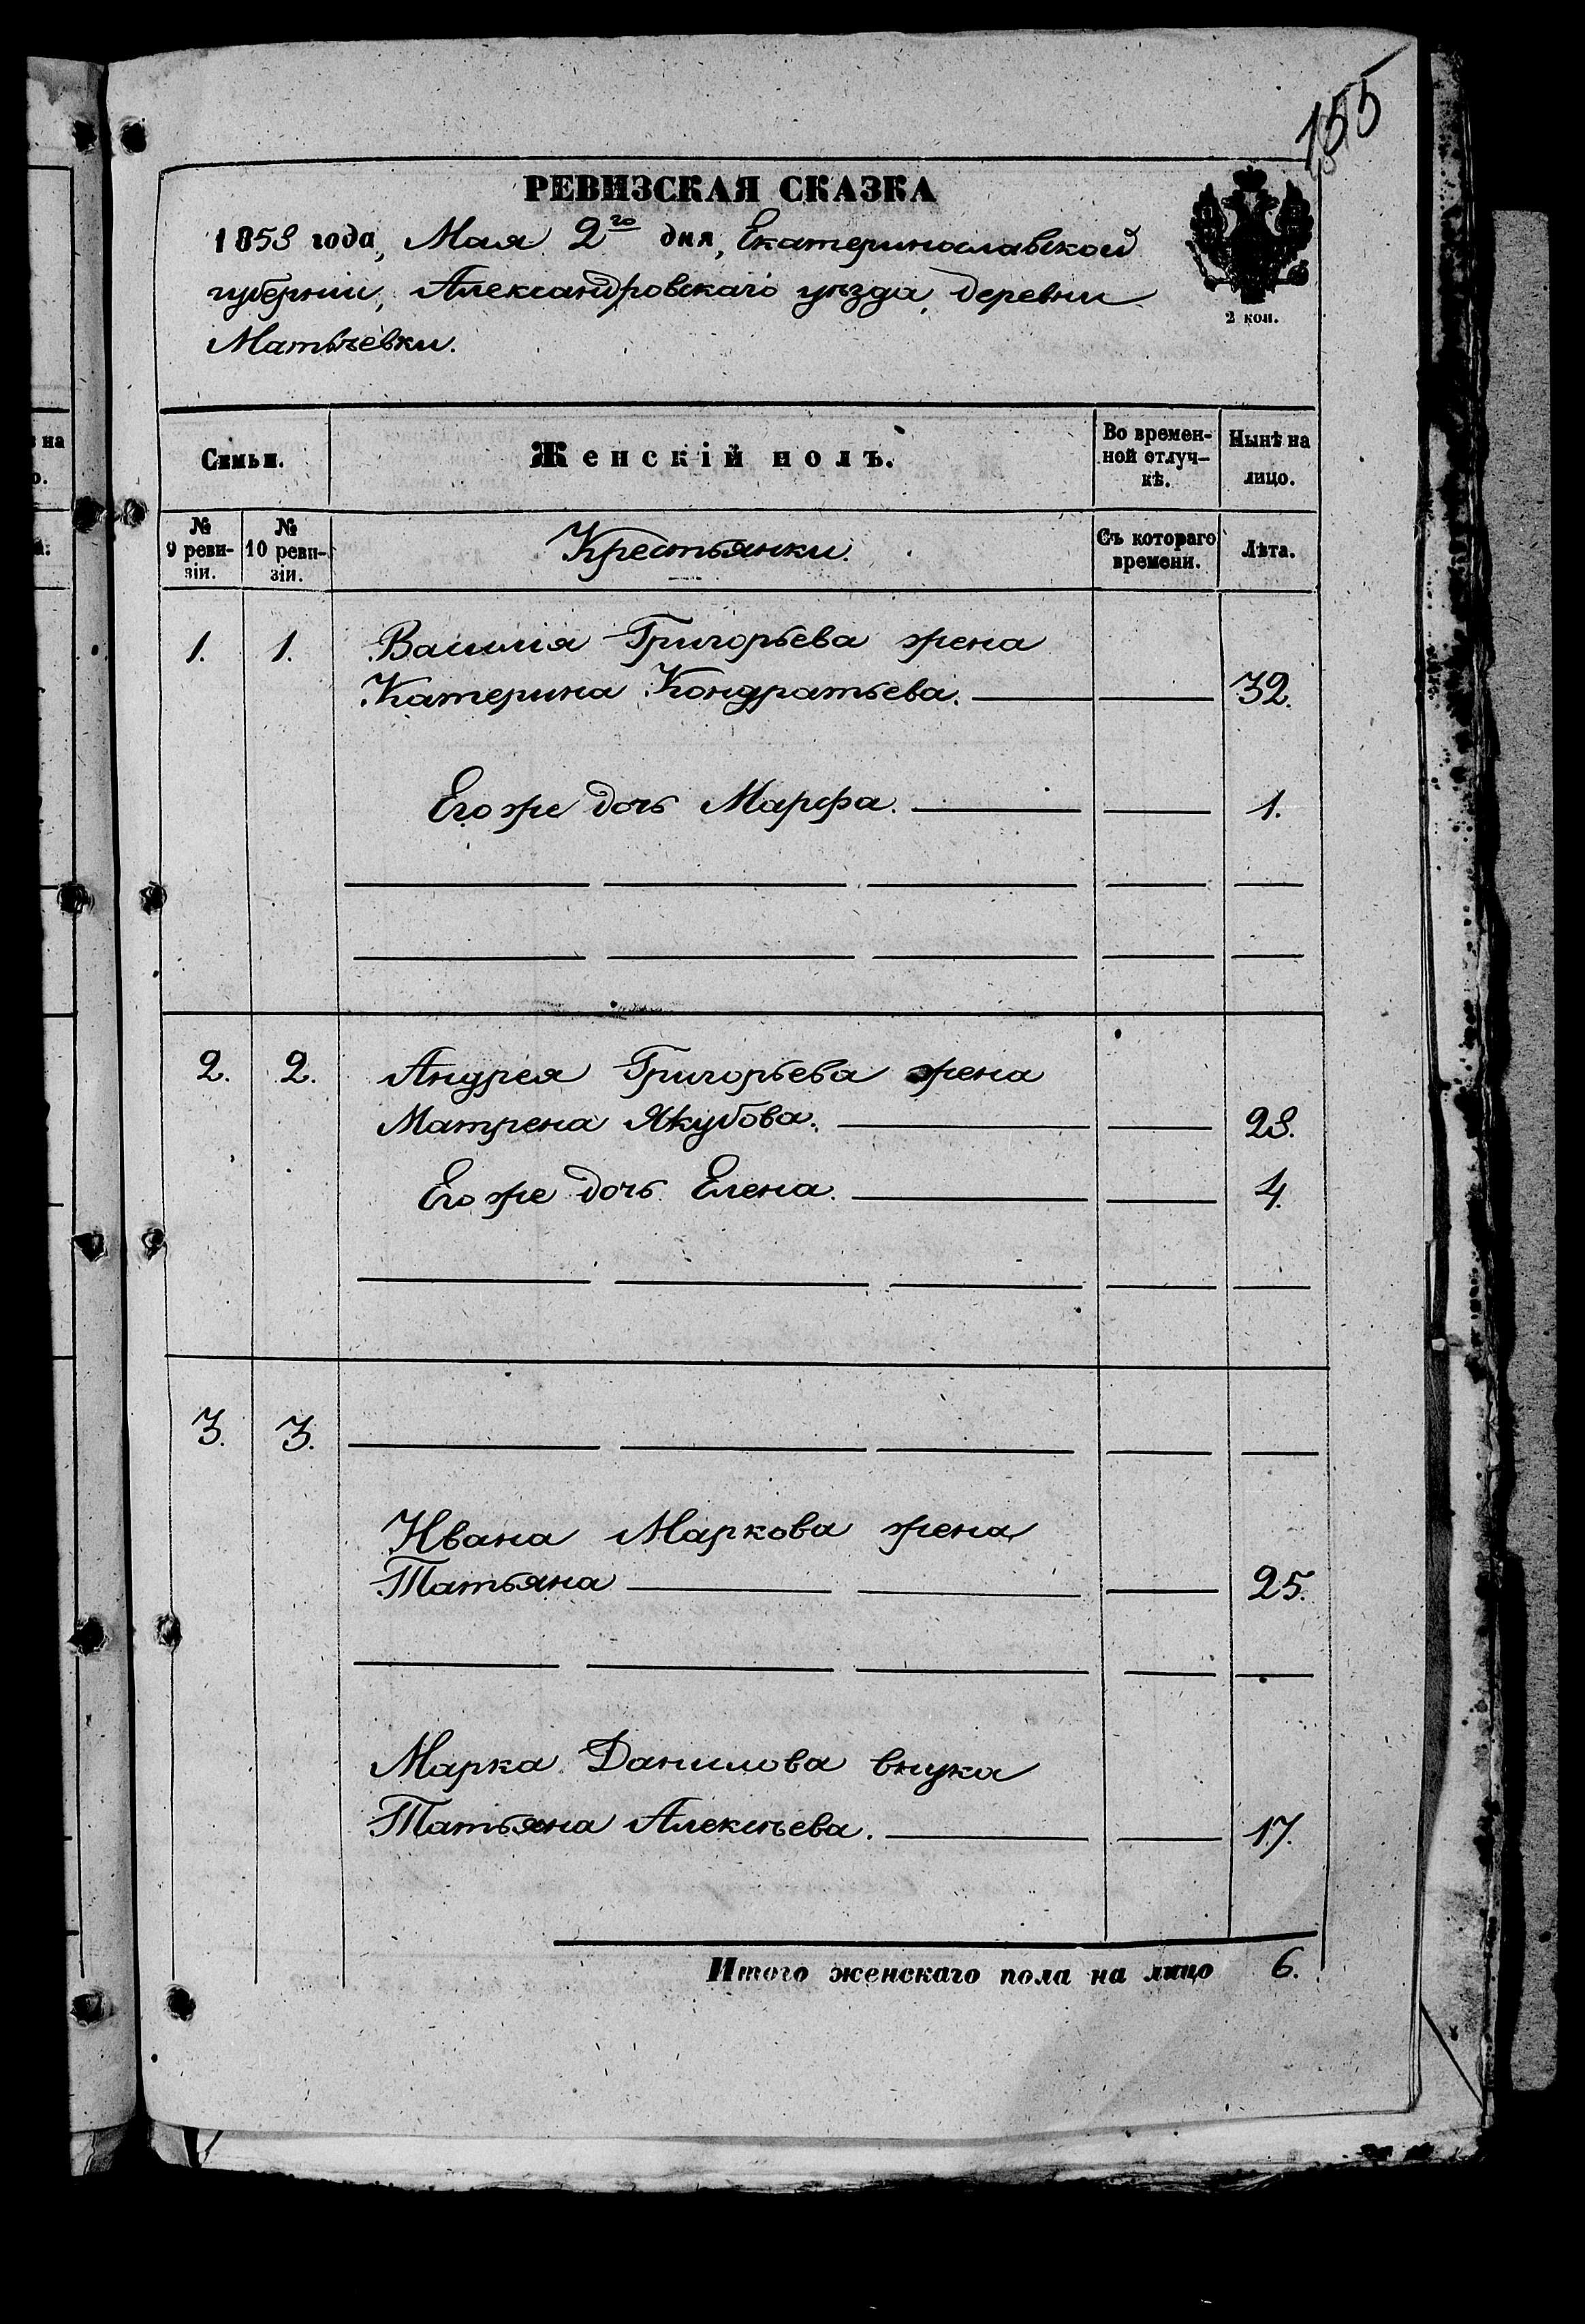 155
РЕВИЗСКАЯ СКАЗКА
1858 года, Мая 2го дня, Екатеринославской
губерніи, Александровскаго уѣзда, деревни
2 коп.
на
Семьи.
Женскій полъ.
Во времен-
ной отлуч-
кѣ.
Нынѣ на
лицо.
№
9 реви-
зіи.
№
10 реви-
зіи.
Крестьянки.
Съ котораго
времени.
Лѣта.
1. 1. Василія Григорьева жена
Катерина Кондратьева. 32.
Его же дочь Марфа. 1.
2. 2. Андрея Григорьева жена
Матрена Якубова. 28.
Его же дочь Елена. 4.
3. 3.
Ивана Маркова жена
Татьяна 25.
Марка Данилова внука
Татьяна Алексѣева. 17.
Итого женскаго пола на лицо 6.